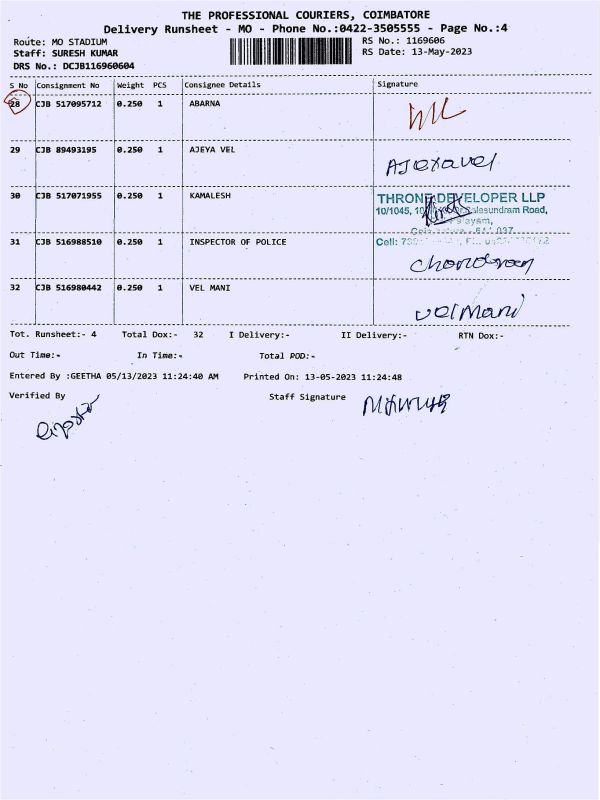 THE PROFESSIONAL COURIERS, COIMBATORE
Delivery Runsheet - MO - Phone No.:0422-3505555 - Page No.:4
Route: MO STADIUM RS No.: 1169606
Staff: SURESH KUMAR RS Date: 13-May-2023
DRS No.: DCJB116960604
S No Consignment No Weight PCS Consignee Details Signature
28 CJB 517095712 0.250 1 ABARNA
29 CJB 89493195 0.250 1 AJEYA VEL
Ajeyavel
30 CJB 517071955 0.250 1 KAMALESH THRONE DEVELOPER LLP
10/1045, Road,
31 CJB 516988510 0.250 1 INSPECTOR OF POLICE Cell:
32 CJB 516980442 0.250 1 VEL MANI
velmani
Tot. Runsheet:- 4 Total Dox:- 32 I Delivery:- II Delivery:- RTN Dox:-
Out Time:- In Time:- Total POD:-
Entered By :GEETHA 05/13/2023 11:24:40 AM Printed On: 13-05-2023 11:24:48
Verified By Staff Signature